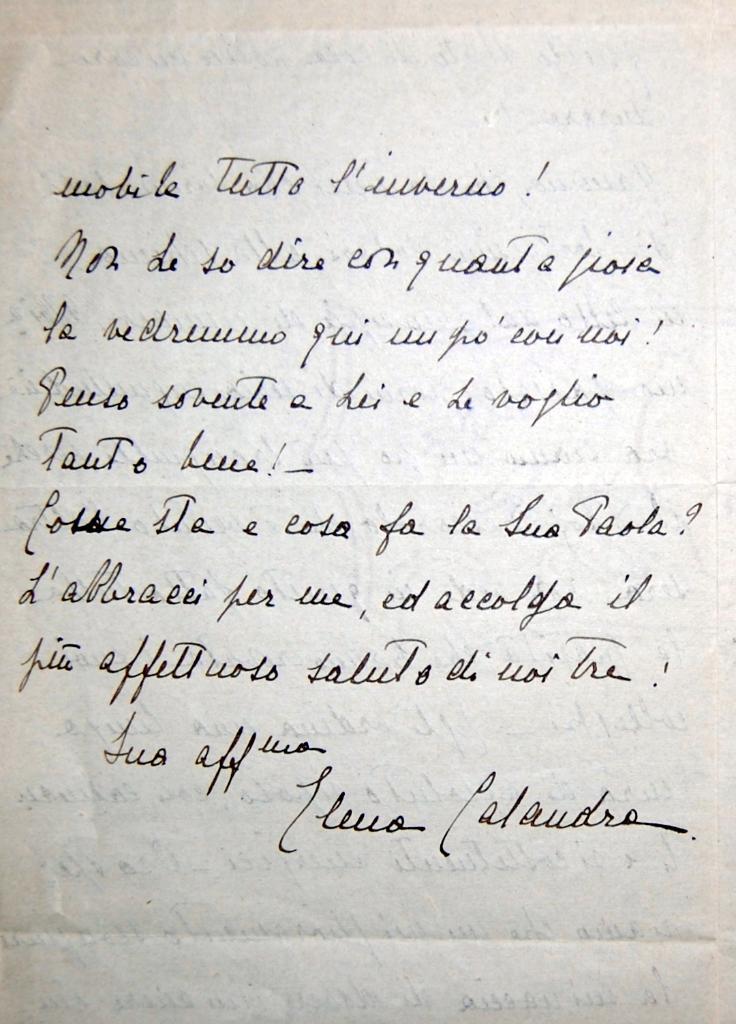 mobile tutto l'inverno!
Non Le so dire con quanta gioia
la vedremmo qui un po' con noi!
Penso sovente a Lei e Le voglio
tanto bene! –
Come sta e cosa fa la Sua Paola?
L'abbracci per me, ed accolga il
più affettuoso saluto di noi tre!
Sua affma
Elena Calandra.